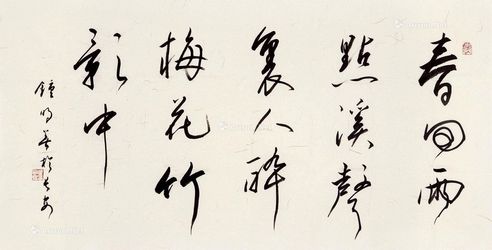 春回雨
點溪聲
裏人醉
梅花竹
影中
鐘明善於長安